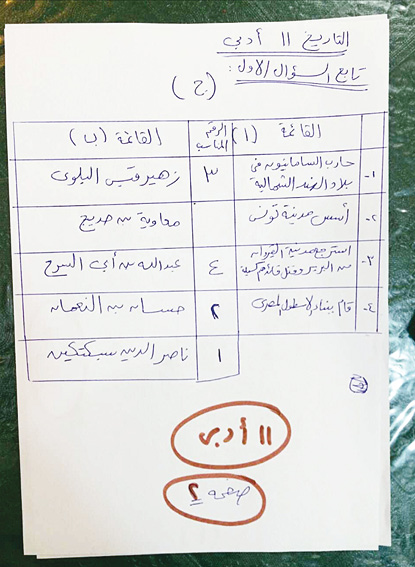 التاريخ ١١ أدبي
تابع السؤال الأول :
(ج)
القائمة (أ) الرقم المناسب القائمة (ب)
١- حارب السامانيون في بلاد الهند الشمالية ٣ زهير قيس البلوي
٢- أسس مدينة تونس معاوية بن حديج
٣- استرجع مدينة القيروان من البربر وقتل ٤ عبدالله بن أبي السرح
٤- قام ببناء الاسطول المصري ٢ حسان بن النعمان
١ ناصر الدين سبكتكين
١١ أدبي
صفحة ٢